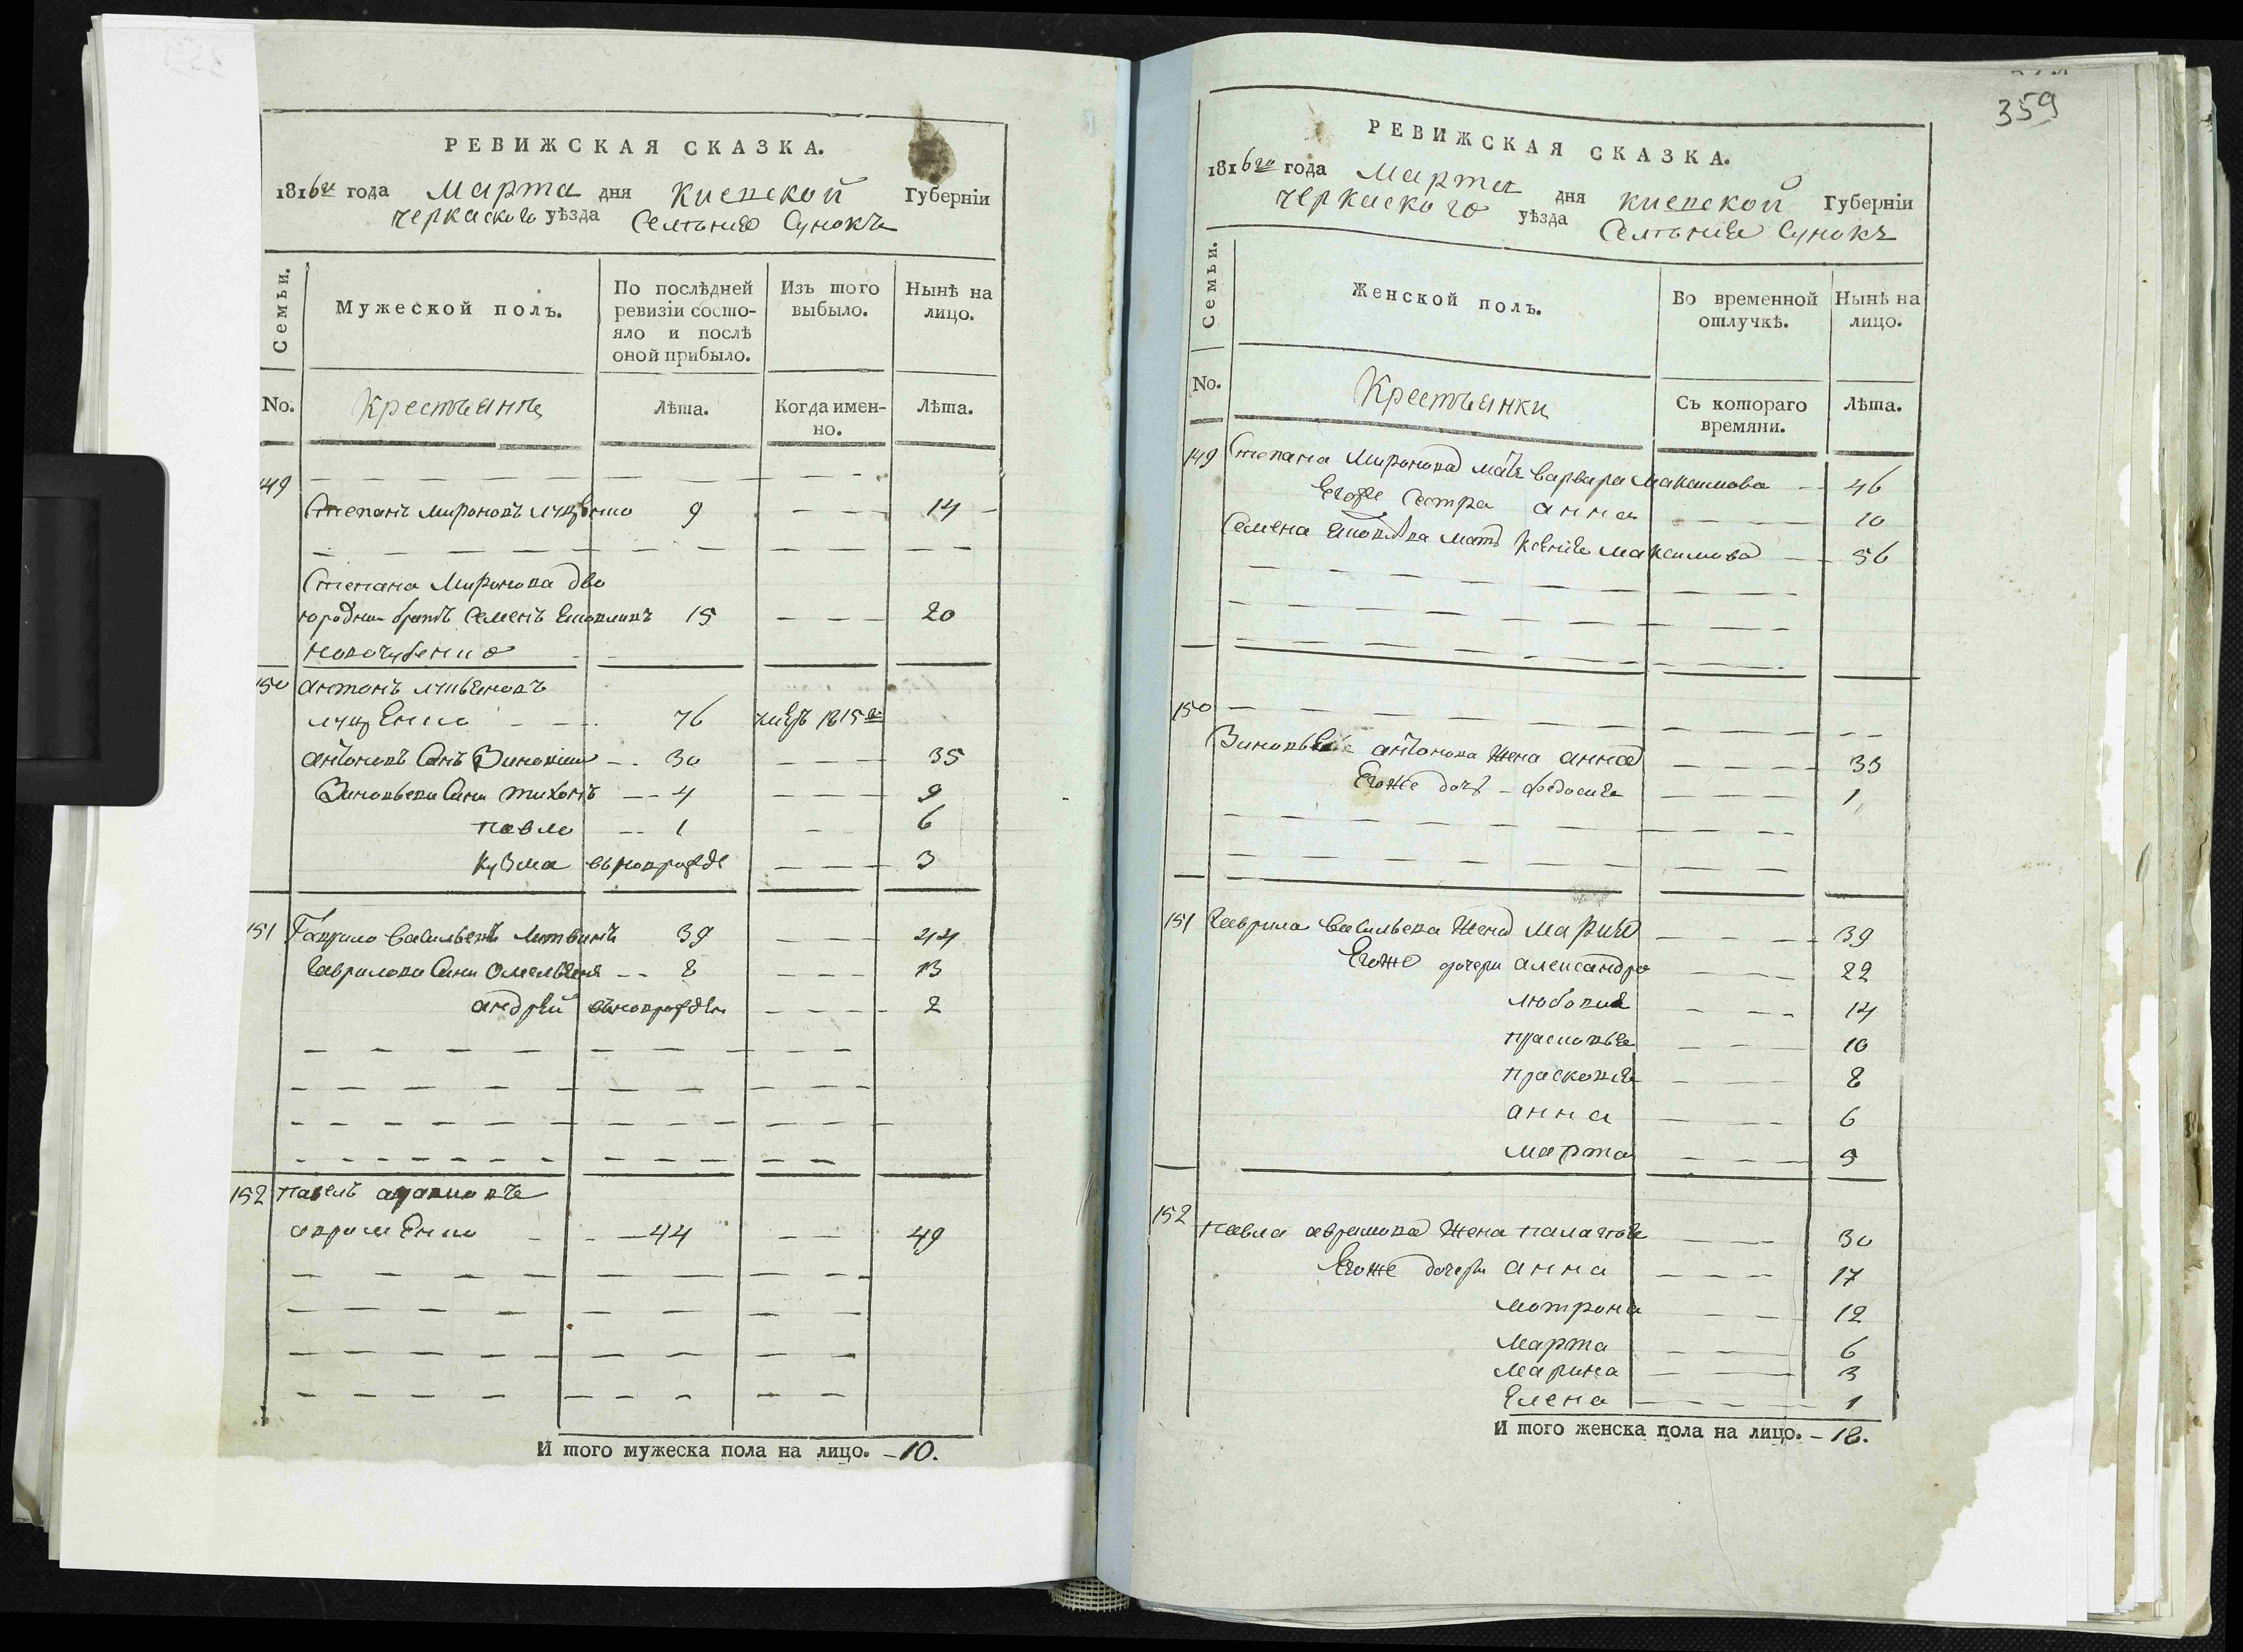 РЕВИЖСКАЯ СКАЗКА.
1816го года Марта дня Киевской Губерніи
Черкаского уѣзда Селѣния Сунокъ
Семьи.
Мужеской полъ.
По послѣдней ревизіи состо-
яло и послѣ
оной прибыло.
Изъ того выбыло.
Нынѣ на лицо.
No.
Крестьянѣ
Лѣта.
Когда имен-
но.
Лѣта.
149
Степанъ Мироновъ Луценко 9 14
Степана Миронова дво
юродни братъ Семенъ 15 20
150 Антонъ
Луценко 76 1815го
Антоновъ Синъ Зиновий 30 35
Зиновьева Сини Тихонъ 4 9
Павло 1 6
Кузма вьноврожде 3
151 Гаврило Васильевъ Литвинъ 39 44
Гаврилова Сини Омельянъ 8 13
Андрѣй вьноврожден 2
152 Павелъ
Авраменко 44 49
И того мужеска пола на лицо. -10.
359
РЕВИЖСКАЯ СКАЗКА.
1816го года Марта дня Киевской Губерніи
Черкаского уѣзда Селѣния Сунокъ
Семьи.
Женской полъ.
Во временной отлучкѣ.
Нынѣ на лицо.
No.
Крестьянки
Съ котораго времяни.
Лѣта.
149 Степана Миронова мать Варвара Максимова 46
Егоже Сестра Анна 10
Семена мать Ксения Максимова 56
150
Зиновья Антонова Жена Анна 33
Егоже дочь - Федосия 1
151 Гаврила Васильева Жена Мария 39
Егоже дочери Александра 22
Любовия 14
Прасковья 10
Прасковия 8
Анна 6
Марта 5
152
Павла Аврамова Жена Палагия 30
Егоже дочери Анна 17
Мотрона 12
Марта 6
Марина 3
Елена 1
И того женска пола на лицо. -18.